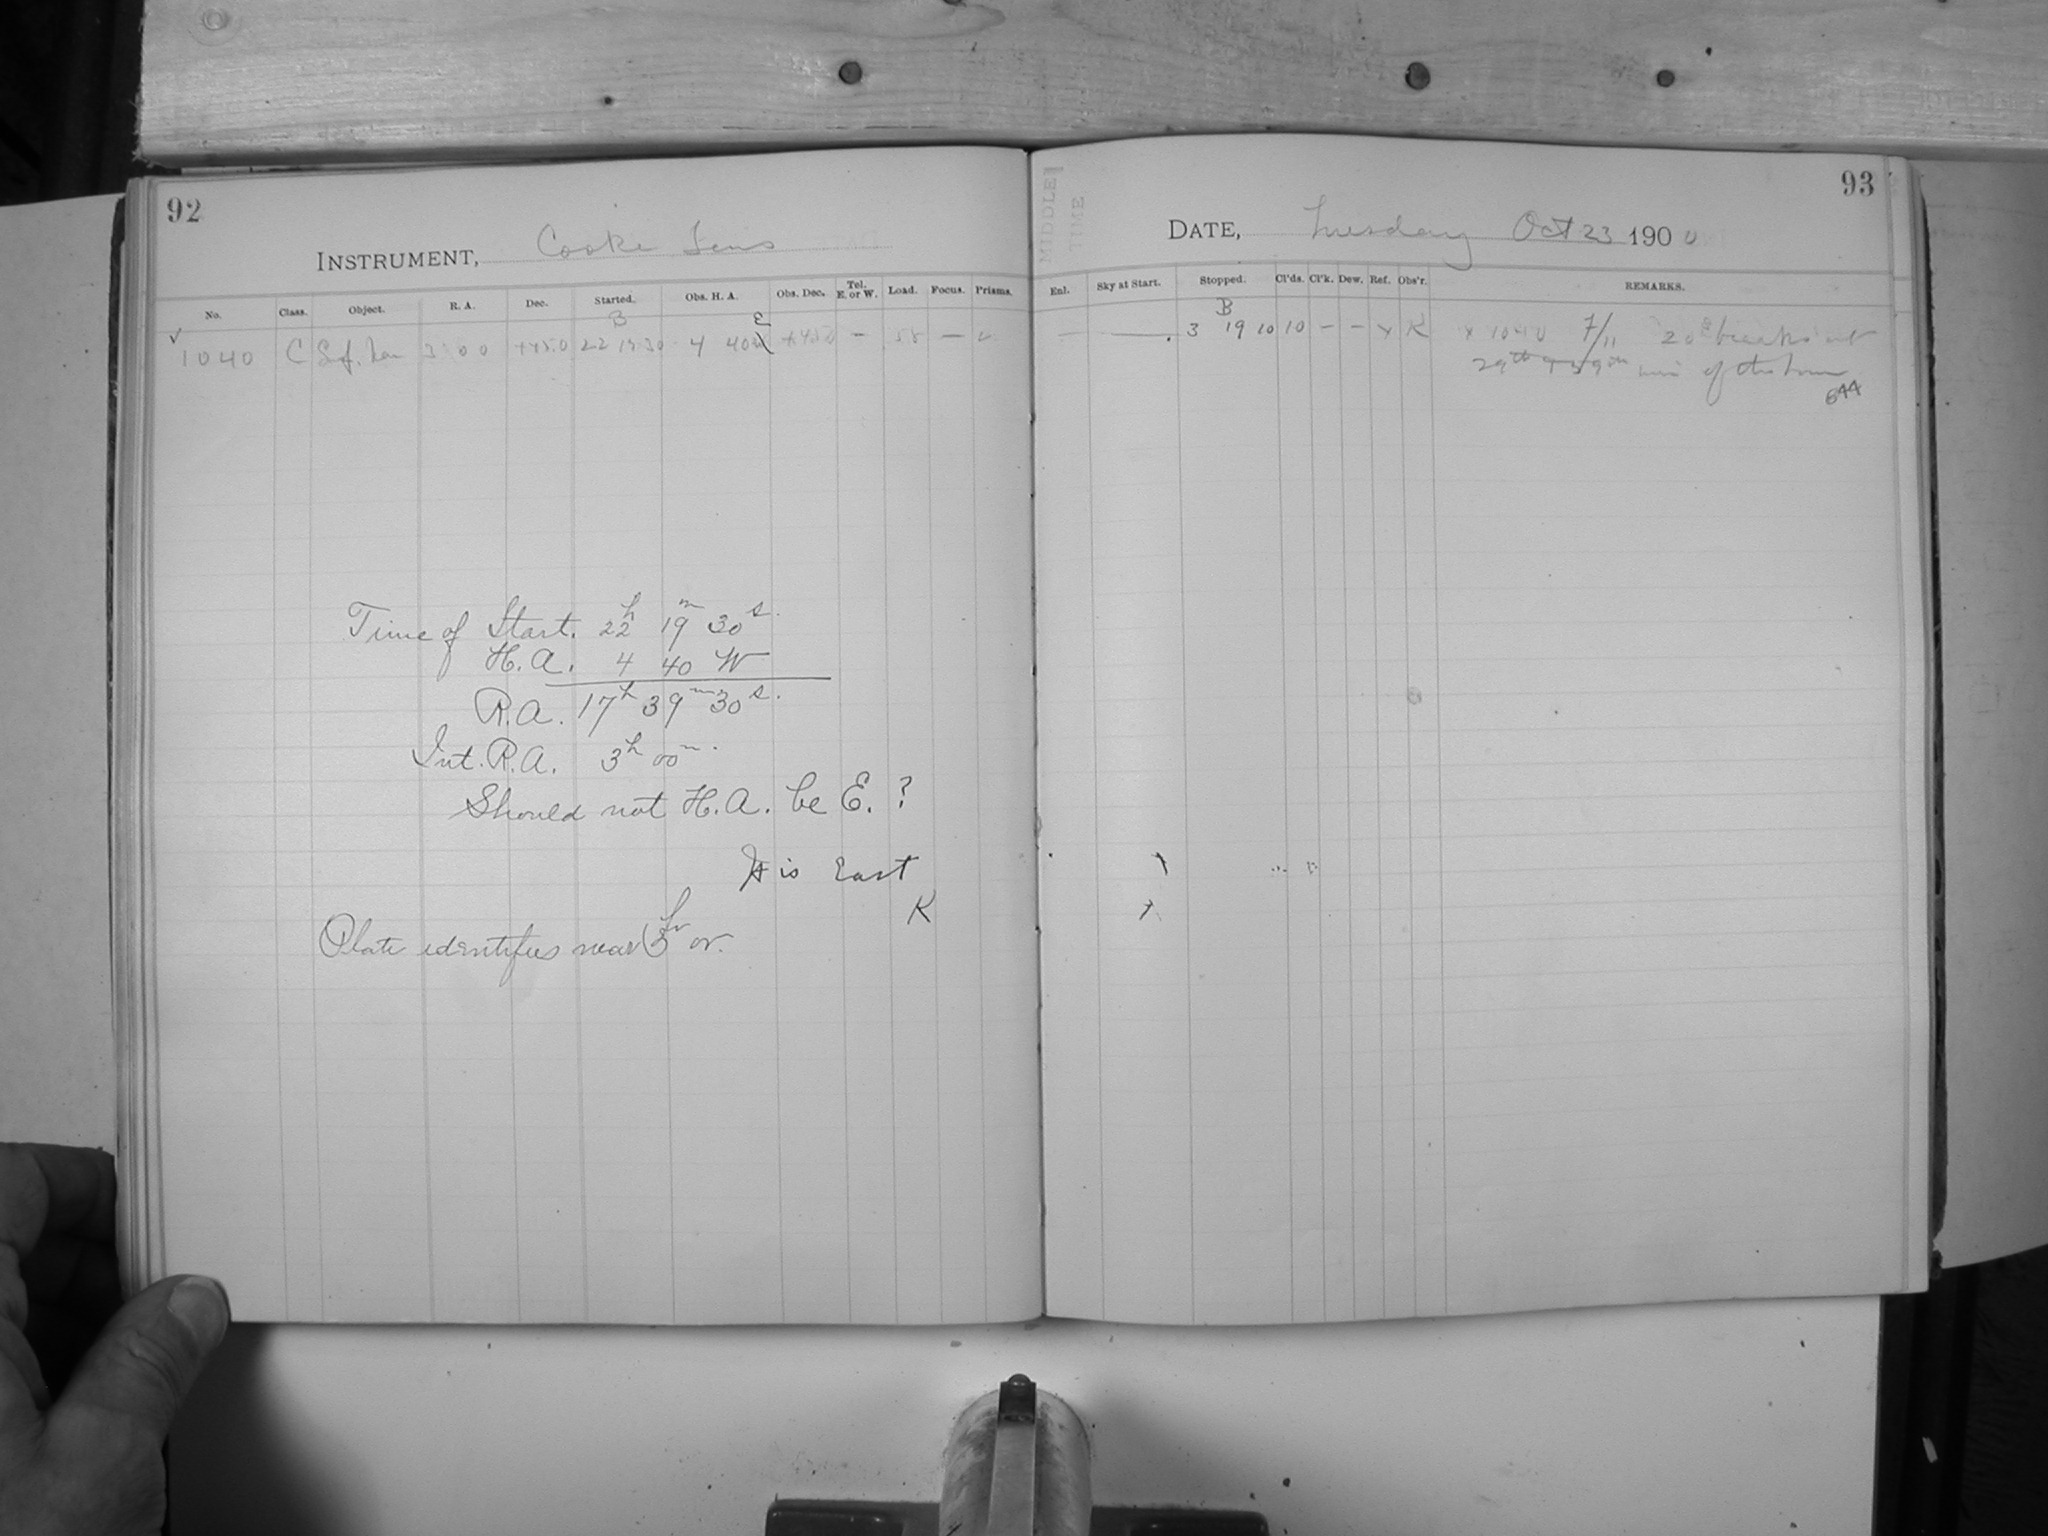 92
INSTRUMENT, Cooke Lens
No. Class. Object. R. A. Dec. Started. Obs. H. A. Obs. Dec. Tel. E. or W. Load. Focus. Prisms.
B E
✓ 1040 C 3 00 +45.0 22 19 30 4 40 +45.0 – 55 –
Time of Start. 22h 19m 30s.
H.A. 4 40 W
R.A. 17h 39m 30s.
Int. R.A. 3h 00m.
Should not H.A. be E.?
It is East
K
Plate identifies near 3h 00.
MIDDLE
TIME
93
DATE, Tuesday Oct 23 1900
Enl. Sky at Start. Stopped. Cl'ds. Cl'k. Dew. Ref. Obs'r. REMARKS.
B
– —. 3 19 10 10 – – x K x 1040 7/11 20s breaks at
29th 59th min of the hour